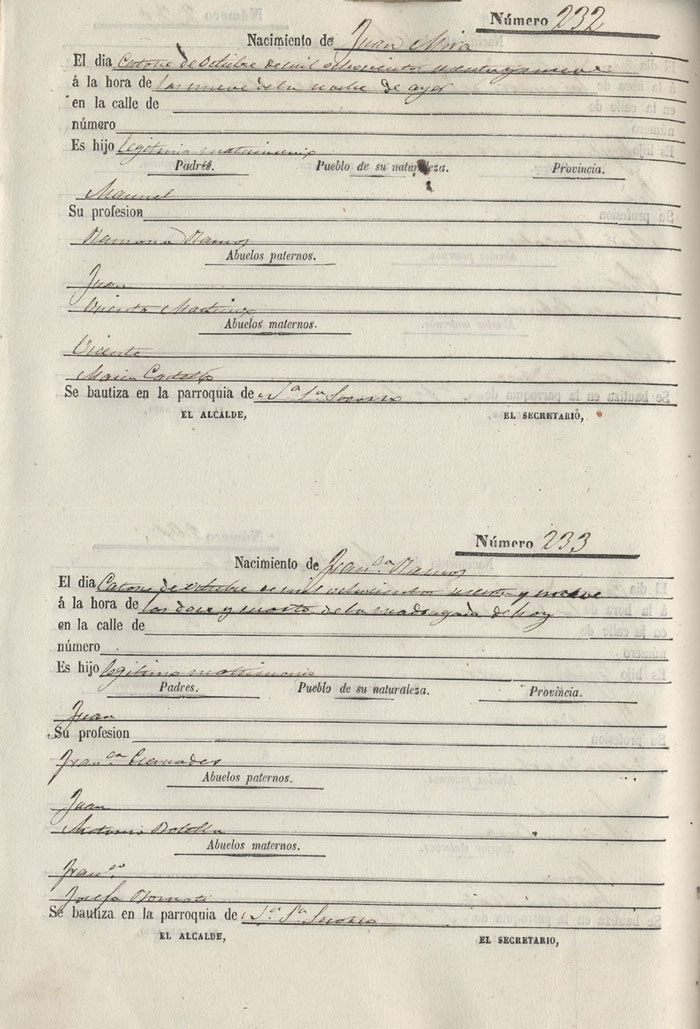 Número 232
Nacimiento de Juan Mira
El dia Catorse de Octubre de mil ochocientos sesenta y nueve
á la hora de las nueve de la noche de ayer
en la calle de
número
Es hijo legitimo matrimonio
Padres. Pueblo de su naturaleza. Provincia.
Manuel
Su profesion
Ramona Ramos
Abuelos paternos.
Juan
Vicenta Martinez
Abuelos maternos.
Vicente
Maria Castelló
Se bautiza en la parroquia de Nª Sª Socorro
EL ALCALDE, EL SECRETARIO,
Número 233
Nacimiento de Franca Ramos
El dia Catorse de Octubre de mil ochocientos sesenta y nueve
á la hora de las doce y cuarto de la madrugada de hoy
en la calle de
número
Es hijo legitimo matrimonio
Padres. Pueblo de su naturaleza. Provincia.
Juan
Su profesion
Franca
Abuelos paternos.
Juan
Antonia Botella
Abuelos maternos.
Franco
Josefa
Se bautiza en la parroquia de Nª Sª Socorro
EL ALCALDE, EL SECRETARIO,